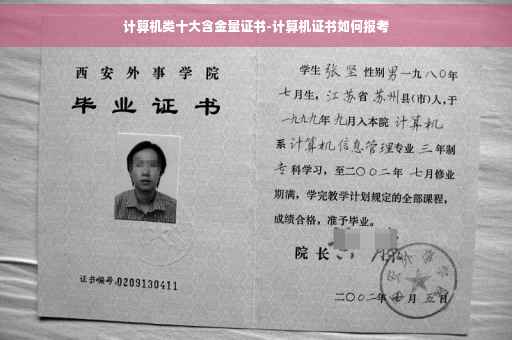 计算机类十大含金量证书-计算机证书如何报考
西安外事学院
毕业证书
证书编号:0209130411
学生 张坚 性别 男 一九八〇年
七月生，江苏省 苏州县(市)人，于
一九九九年 九月入本院 计算机
系 计算机信息管理专业 三 年制
专科学习，至二〇〇二年 七月修业
期满，学完教学计划规定的全部课程，
成绩合格，准予毕业。
院长
二〇〇二年 月 五日